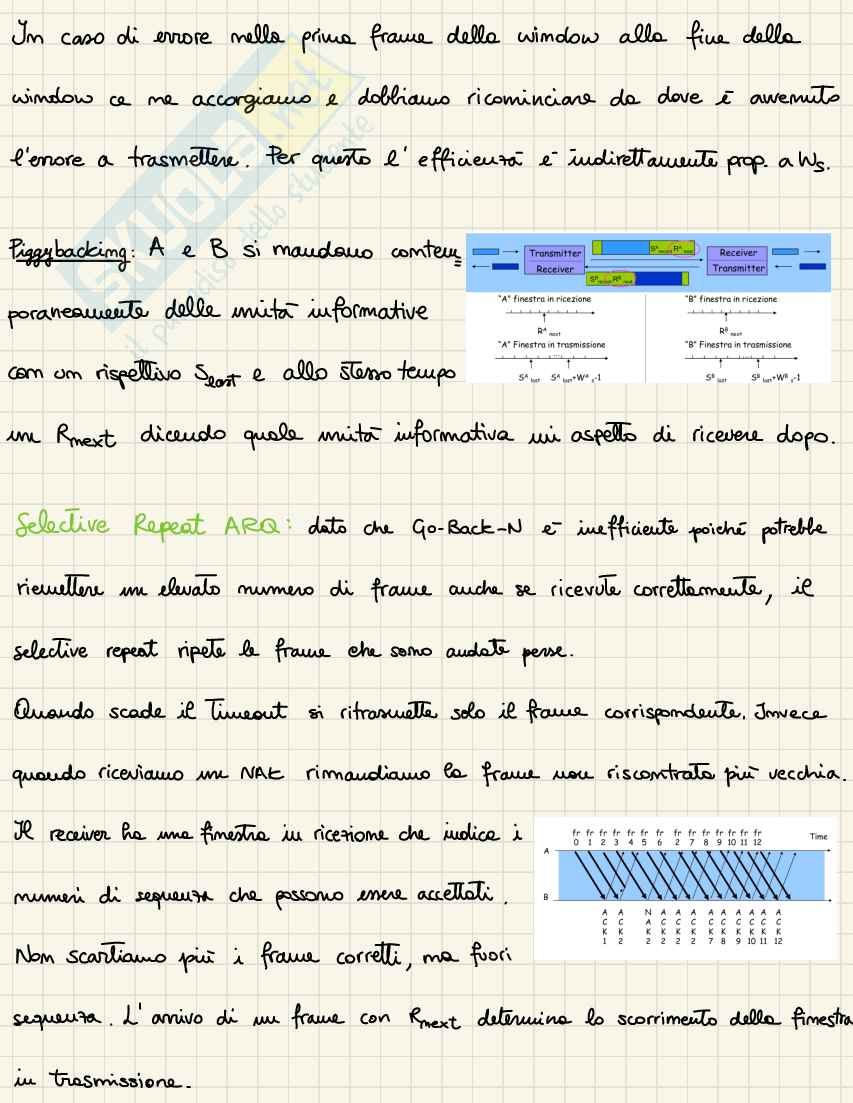 In caso di errore nella prima frame della window alla fine della
window ce ne accorgiamo e dobbiamo ricominciare da dove è avvenuto
l'errore a trasmettere. Per questo l'efficienza è indirettamente prop. a Ws.
SKUOLA.net
il paradiso dello studente
Piggybacking: A e B si mandano contem
poraneamente delle unità informative
con un rispettivo Slast e allo stesso tempo
un Rnext dicendo quale unità informativa mi aspetto di ricevere dopo.
Transmitter
Receiver
SA recent RA next
SB recent RB next
Receiver
Transmitter
"A" finestra in ricezione
RA next
"A" Finestra in trasmissione
SA last SA last+WA s-1
"B" finestra in ricezione
RB next
"B" Finestra in trasmissione
SB last SB last+WB s-1
Selective Repeat ARQ: dato che Go-Back-N è inefficiente poiché potrebbe
riemettere un elevato numero di frame anche se ricevute correttamente, il
selective repeat ripete le frame che sono andate perse.
Quando scade il Timeout si ritrasmette solo il frame corrispondente. Invece
quando riceviamo un NAK rimandiamo la frame non riscontrata più vecchia.
Il receiver ha una finestra in ricezione che indica i
numeri di sequenza che possono essere accettati.
Non scartiamo più i frame corretti, ma fuori
sequenza. L'arrivo di un frame con Rnext determina lo scorrimento della finestra
in trasmissione.
fr fr fr fr fr fr fr fr fr fr fr fr fr fr
0 1 2 3 4 5 6 2 7 8 9 10 11 12
Time
A
B
ACK1 ACK2 NAK2 ACK2 ACK2 ACK2 ACK7 ACK8 ACK9 ACK10 ACK11 ACK12